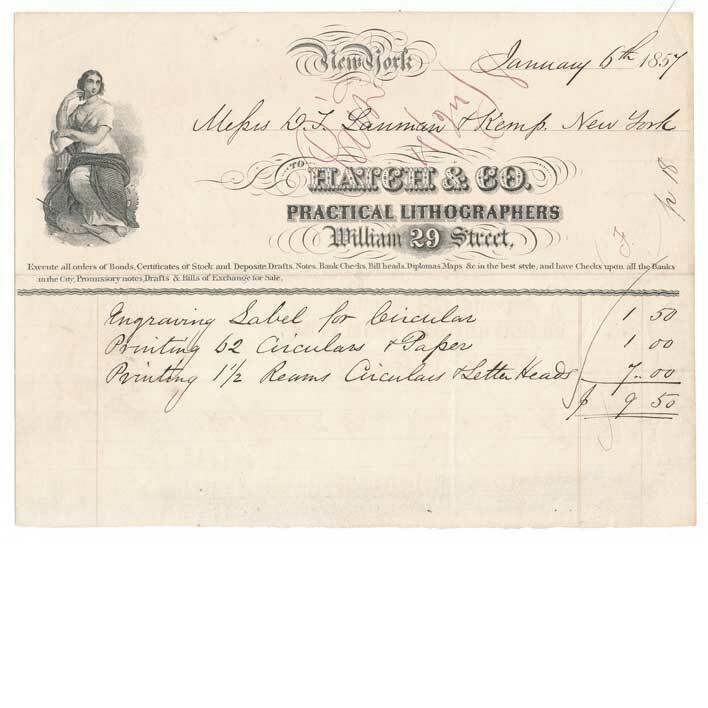 New York January 6th 1857
Messrs D. T. Lanman & Kemp. New York
TO
HATCH & CO.
PRACTICAL LITHOGRAPHERS
William 29 Street,
Execute all orders of Bonds, Certificates of Stock and Deposite, Drafts, Notes, Bank Checks, Bill heads, Diplomas, Maps &c in the best style, and have Checks upon all the Banks
in the City, Promissory notes, Drafts & Bills of Exchange for Sale.
Engraving Label for Circular 1 50
Printing 62 Circulars & Paper 1 00
Printing 1 1/2 Reams Circulars & Letter Heads 7.. 00
$ 9 50